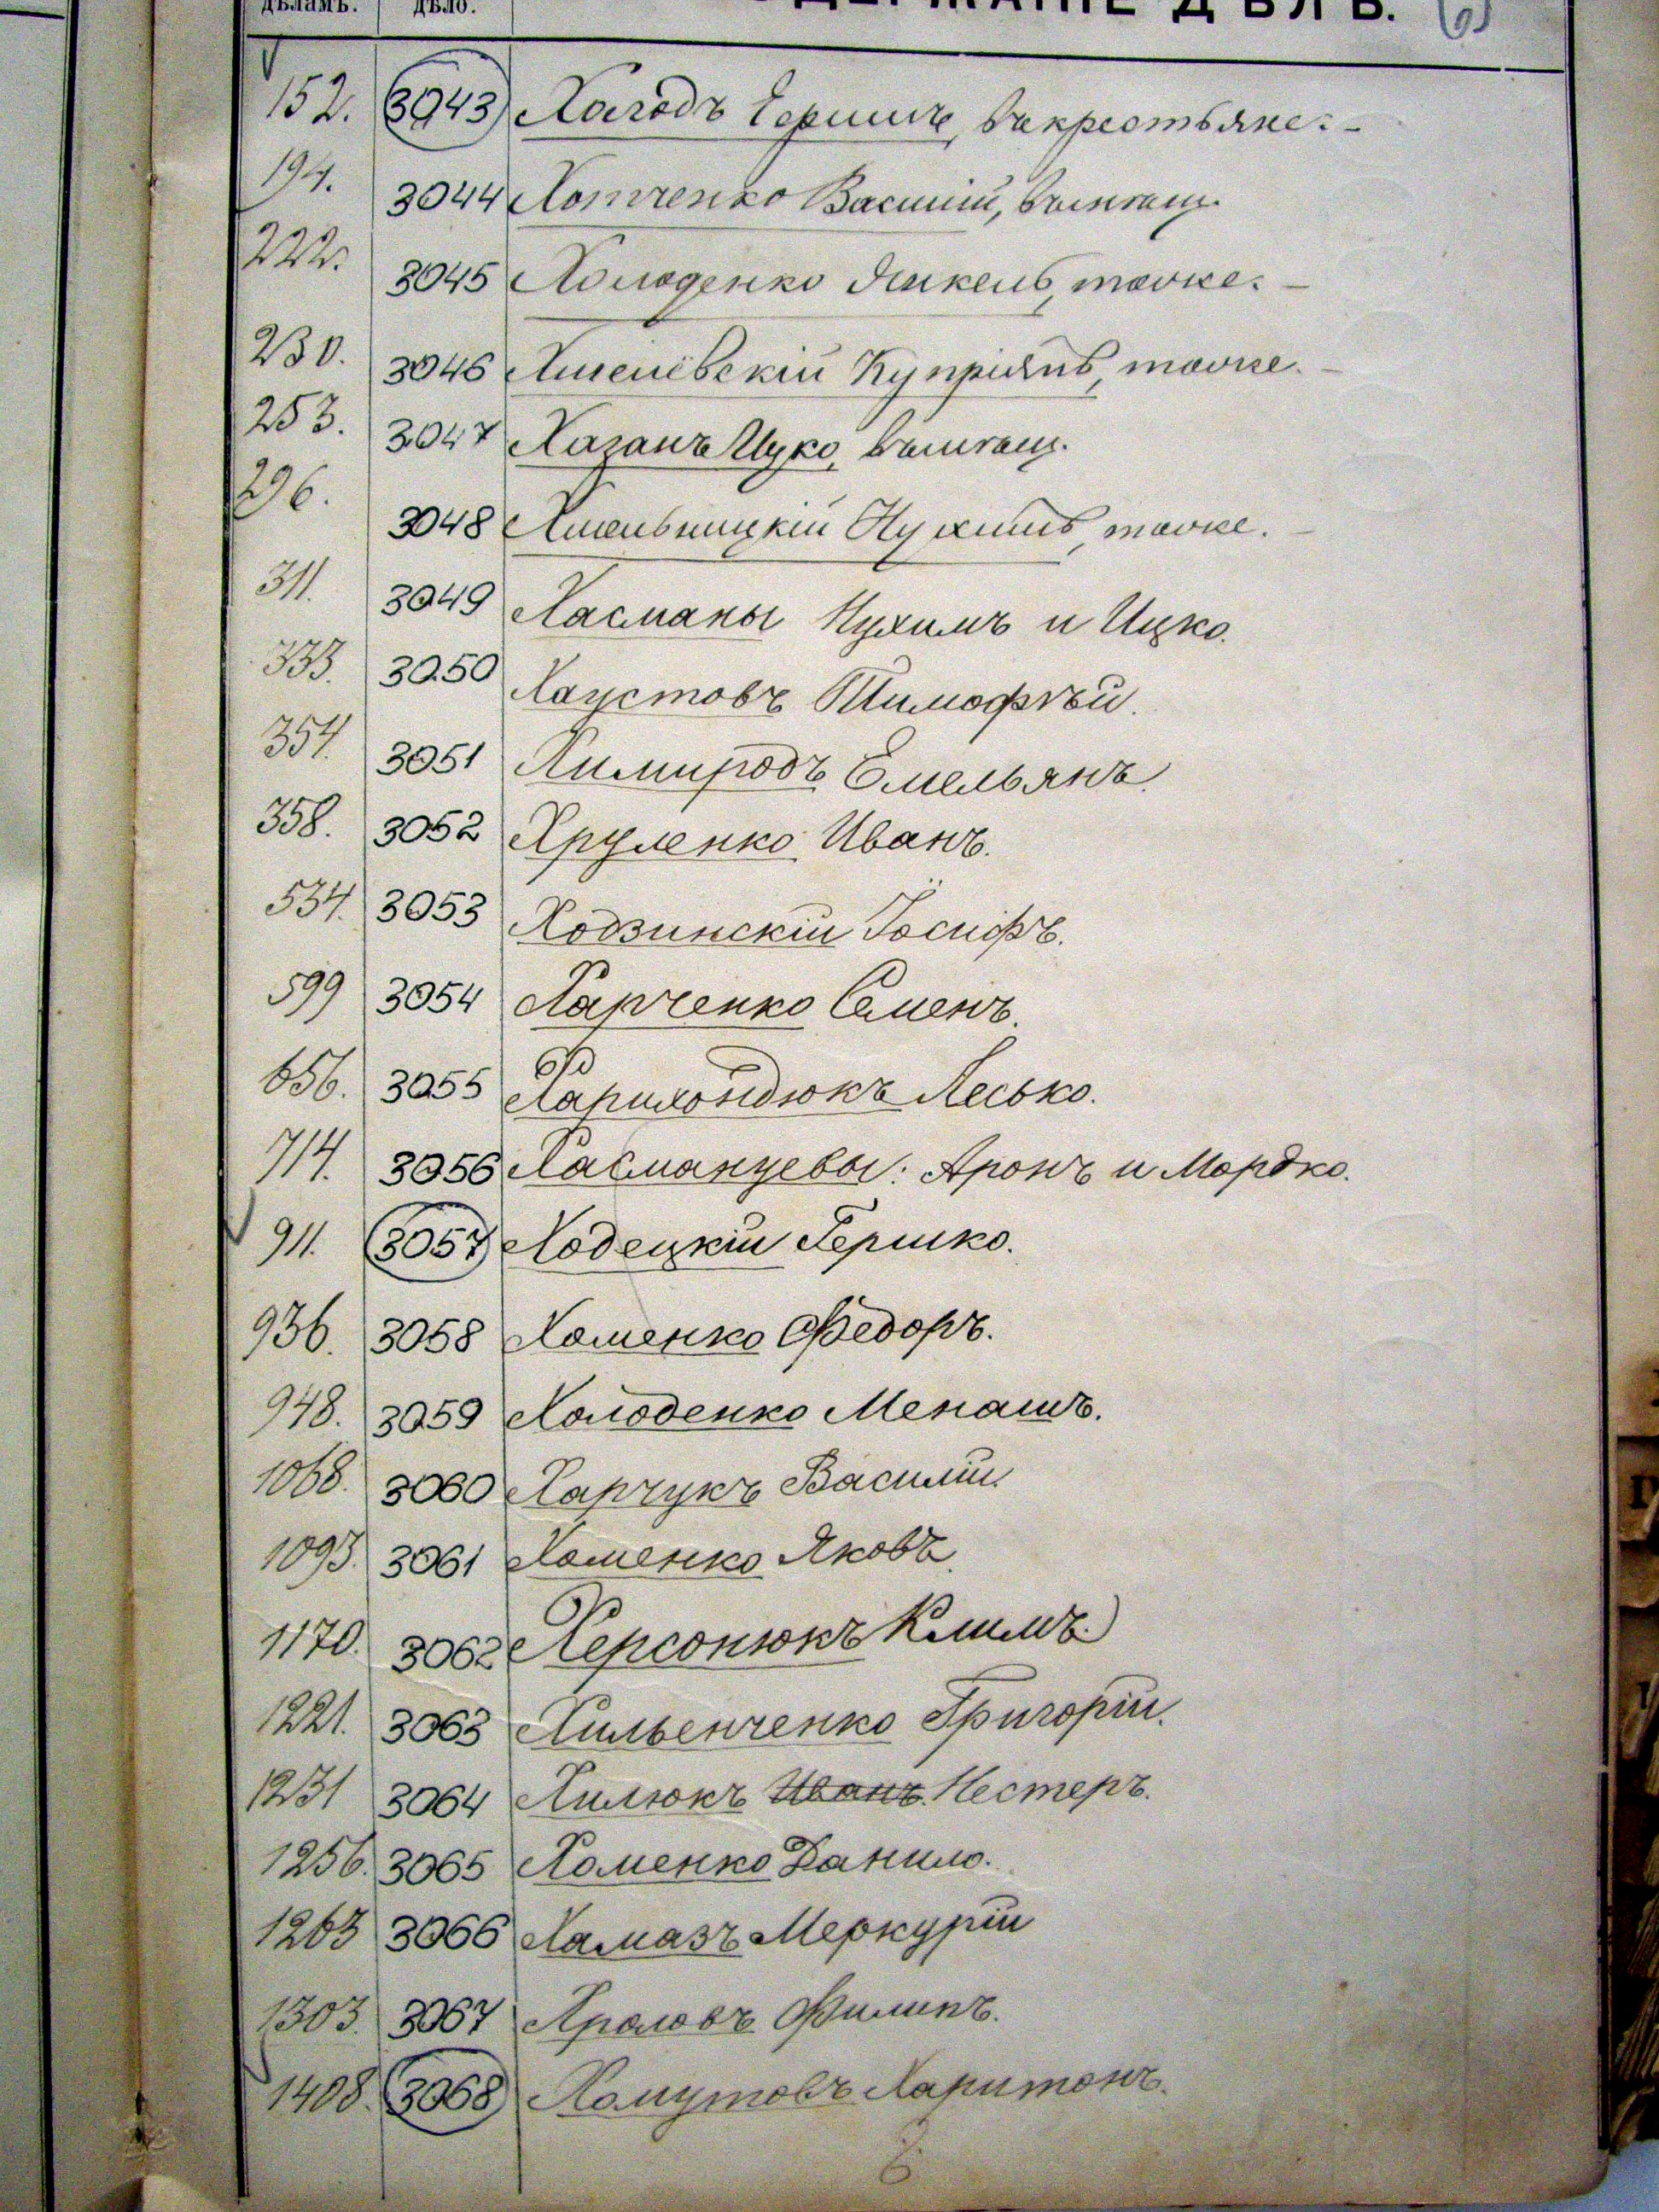 дѣламъ. дѣло. СОДЕРЖАНІЕ ДѢЛЪ.
152. 3043 Холодъ Гершъ, въ крестьяне.-
194. 3044 Хотченко Василій, въ мѣщ.
222. 3045 Холоденко Янкель, тоже. -
230. 3046 Хмелевскій Купріянъ, тоже. -
253. 3047 Хазанъ Ицко, въ мѣщ.
296. 3048 Хмельницкій Нухимъ, тоже. -
311. 3049 Хасманы Нухимъ и Ицко.
333. 3050 Хаустовъ Тимофѣй.
354. 3051 Химиродъ Емельянъ.
358. 3052 Хруленко Иванъ.
534. 3053 Ходзинскій Іосифъ.
599 3054 Харченко Семенъ.
656. 3055 Харихондюкъ Лесько.
714. 3056 Хасманцевы: Аронъ и Мордко.
911. 3057 Ходецкій Гершко.
936. 3058 Хоменко Ѳедоръ.
948. 3059 Холоденко Менашъ.
1068. 3060 Харчукъ Василій.
1093. 3061 Хоменко Яковъ.
1170. 3062 Херсонюкъ Климъ.
1221. 3063 Хильенченко Григорій.
1231 3064 Хилюкъ Иванъ. Нестеръ.
1256. 3065 Хоменко Данило.
1263 3066 Хамазъ Меркурій
1303. 3067 Хроловъ Филипъ.
1408. 3068 Хомутовъ Харитонъ.